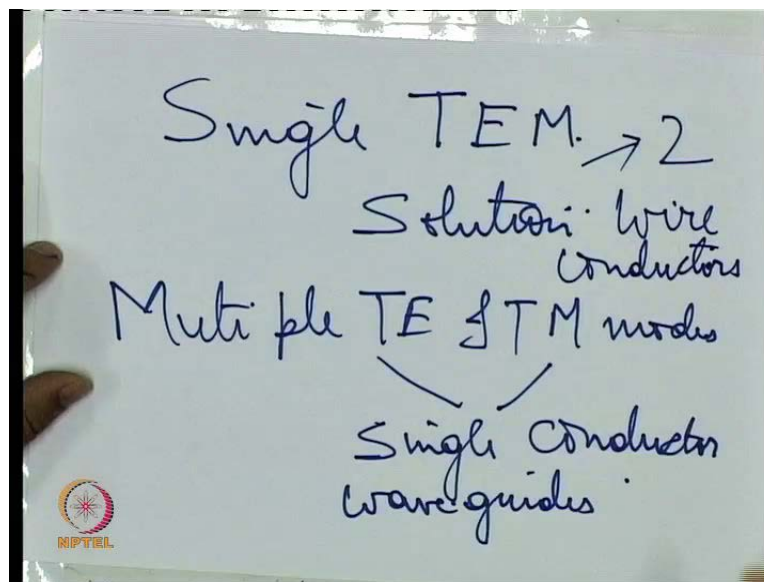 Single TEM. → 2
Solution. wire
conductors
Mutiple TE & TM modes
Single Conductor
waveguides.
NPTEL